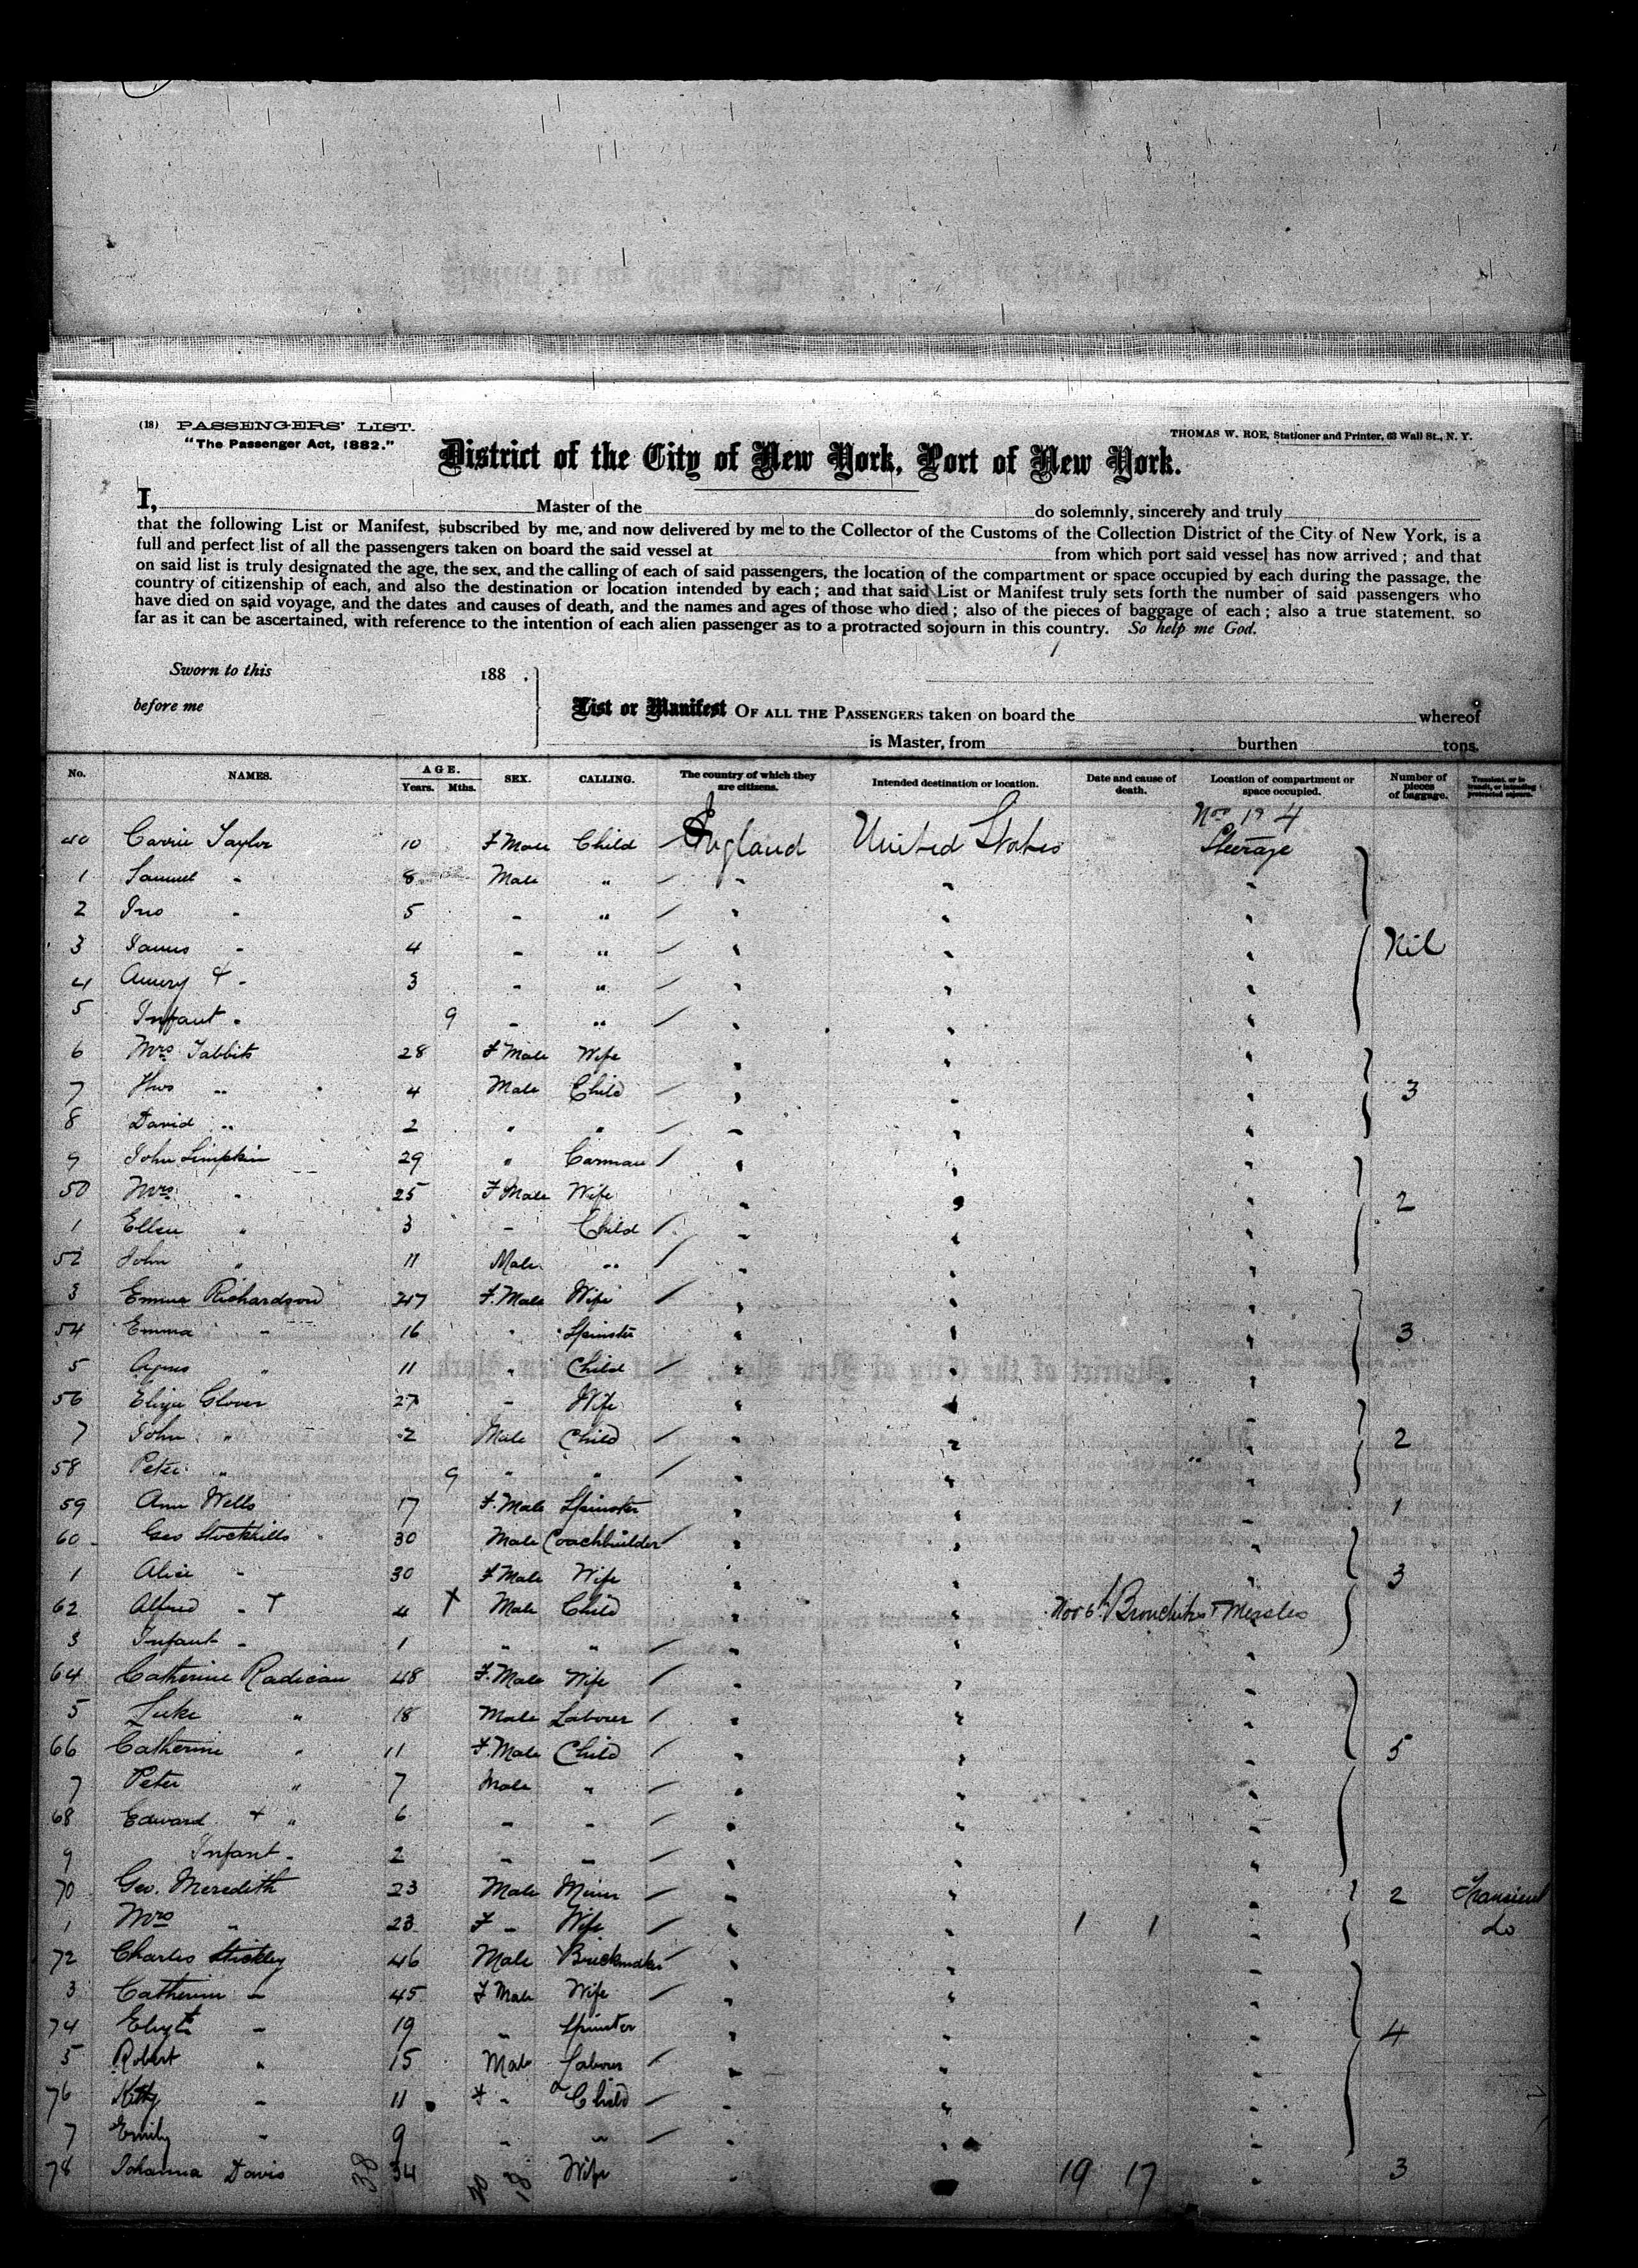 (18) PASSENGERS' LIST.
"The Passenger Act, 1882."
THOMAS W. ROE, Stationer and Printer, 63 Wall St., N. Y.
District of the City of New York, Port of New York.
I, Master of the do solemnly, sincerely and truly
that the following List or Manifest, subscribed by me, and now delivered by me to the Collector of the Customs of the Collection District of the City of New York, is a
full and perfect list of all the passengers taken on board the said vessel at from which port said vessel has now arrived; and that
on said list is truly designated the age, the sex, and the calling of each of said passengers, the location of the compartment or space occupied by each during the passage, the
country of citizenship of each, and also the destination or location intended by each; and that said List or Manifest truly sets forth the number of said passengers who
have died on said voyage, and the dates and causes of death, and the names and ages of those who died; also of the pieces of baggage of each; also a true statement, so
far as it can be ascertained, with reference to the intention of each alien passenger as to a protracted sojourn in this country. So help me God.
Sworn to this 188 .
before me
List or Manifest OF ALL THE PASSENGERS taken on board the whereof
is Master, from burthen tons.
No. NAMES. AGE. Years. Mths. SEX. CALLING. The country of which they are citizens. Intended destination or location. Date and cause of death. Location of compartment or space occupied. Number of pieces of baggage. Transient, or in transit, or intending protracted sojourn.
40 Carrie Taylor 10 F Male Child England United States Steerage
1 Samuel " 8 Male " " " "
2 Jno " 5 " " " " "
3 James " 4 " " " " " Nil
4 " 3 " " " " "
5 Infant " 9 " " " " "
6 Mrs Tabbits 28 F Male Wife " " "
7 " 4 Male Child " " " 3
8 David " 2 " " " " "
9 John Limpkin 29 " Carman " " "
50 Mrs " 25 F Male Wife " " " 2
1 Ellen " 3 " Child " " "
52 John " 11 Male " " " "
3 Emma Richardson 47 F. Male Wife " " "
54 Emma " 16 " Spinster " " " 3
5 Agnes " 11 " Child " " "
56 Eliza Glover 27 " Wife " " "
7 John " 2 Male Child " " " 2
58 Peter " 9 " " " " "
59 Ann Wells 17 F. Male Spinster " " " 1
60 Geo Stockhills 30 Male Coachbuilder " " "
1 Alice " 30 F Male Wife " " " 3
62 Alfred " + 4 + Male Child " " Nov 6th Bronchitis + Measles "
3 Infant " 1 " " " " "
64 Catherine Radican 48 F. Male Wife " " "
5 Luke " 18 Male Labourer " " "
66 Catherine " 11 F. Male Child " " " 5
7 Peter " 7 Male " " " "
68 Edward + " 6 " " " " "
9 Infant " 2 " " " " "
70 Geo. Meredith 23 Male Miner " " " 2 Transient
1 Mrs " 23 F " Wife " " 1 1 " do
72 Charles Stickley 46 Male Brickmaker " " "
3 Catherine " 45 F Male Wife " " "
74 Elizth " 19 " Spinster " " " 4
5 Robert " 15 Male Labourer " " "
76 Kitty " 11 F " Child " " "
7 Emily " 9 " " " " "
78 Johanna Davis 38 34 20 18 Wife " " 19 17 " 3